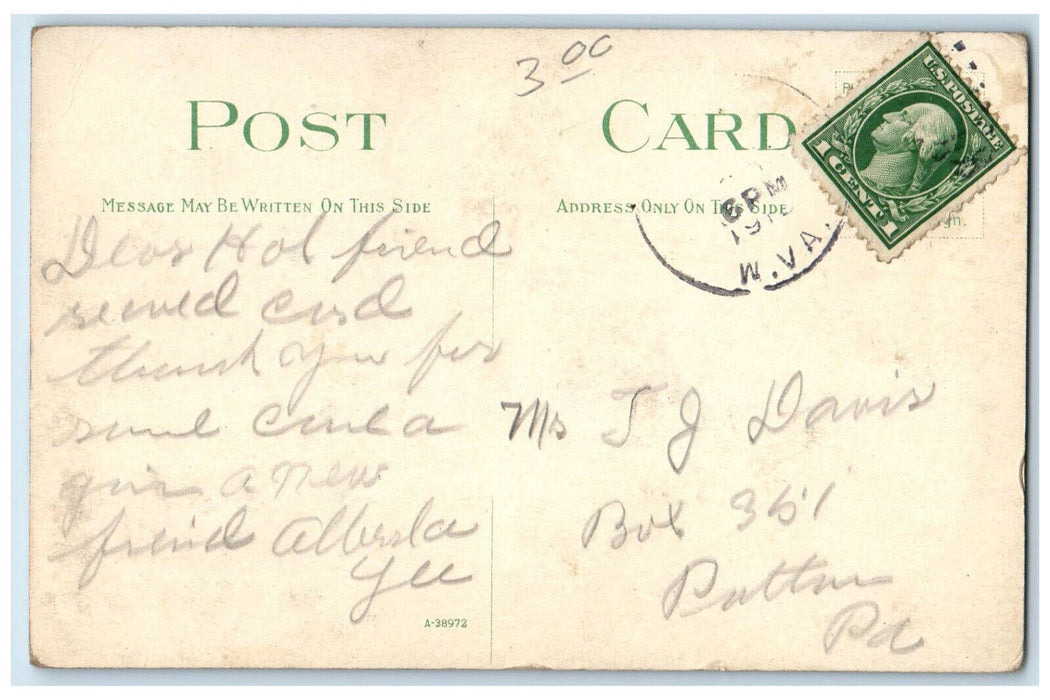 3 00
POST CARD
U.S. POSTAGE
1 CENT 1
MESSAGE MAY BE WRITTEN ON THIS SIDE
ADDRESS ONLY ON THIS SIDE
6 PM
W. VA.
Dear friend
card
thank you for
same
a new
friend Alberta
Mrs T J Davis
Box 351
Patton
Pa
A-38972